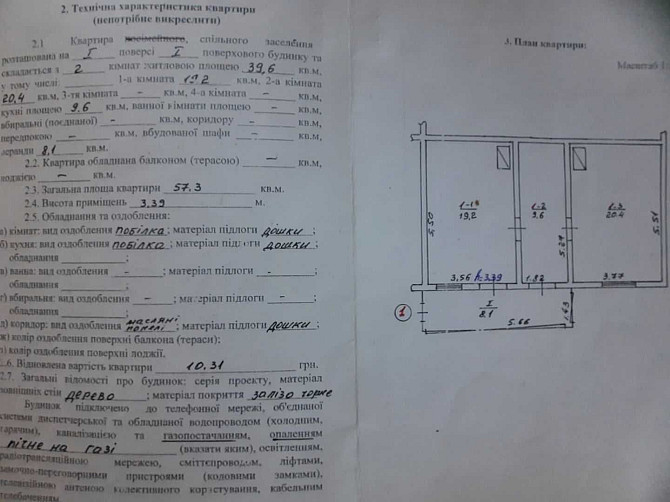 2. Технічна характеристика квартири
(непотрібне викреслити)
2.1 Квартира посімейного, спільного заселення
розташована на I поверсі I поверхового будинку та
складається з 2 кімнат житловою площею 39,6 кв.м,
у тому числі: 1-а кімната 19,2 кв.м, 2-а кімната
20,4 кв.м, 3-тя кімната – кв.м, 4-а кімната – кв.м,
кухні площею 9,6 кв.м, ванної кімнати площею – кв.м,
вбиральні (поєднаної) – кв.м, коридору – кв.м,
передпокою – кв.м, вбудованої шафи – кв.м,
веранди 8,1 кв.м.
2.2. Квартира обладнана балконом (терасою) – кв.м,
лоджією – кв.м.
2.3. Загальна площа квартири 57.3 кв.м.
2.4. Висота приміщень 3.39 м.
2.5. Обладнання та оздоблення:
а) кімнат: вид оздоблення побілка; матеріал підлоги дошки;
б) кухня: вид оздоблення побілка; матеріал підлоги дошки;
обладнання ;
в) ванна: вид оздоблення –; матеріал підлоги – ;
обладнання ;
г) вбиральня: вид оздоблення –; матеріал підлоги – ;
обладнання ;
д) коридор: вид оздоблення масляні панелі; матеріал підлоги дошки;
ж) колір оздоблення поверхні балкона (тераси);
з) колір оздоблення поверхні лоджії.
2.6. Відновлена вартість квартири 10.31 грн.
2.7. Загальні відомості про будинок: серія проекту, матеріал
зовнішніх стін дерево; матеріал покриття залізо чорне
Будинок підключено до телефонної мережі, об'єднаної
системи диспетчерської та обладнаної водопроводом (холодним,
гарячим), каналізацією та газопостачанням, опаленням
пічне на газі (вказати яким), освітленням,
радіотрансляційною мережею, сміттєпроводом, ліфтами,
замочно-переговорними пристроями (кодовими замками),
телевізійною антеною колективного користування, кабельним
телебаченням
3. План квартири:
Масштаб 1:
1-1 1-2 1-3
19,2 9,6 20.4
5.50 5.27 5.51
3.56 h=3.39 1.82 3.77
1 I
8.1
1.43
5.66